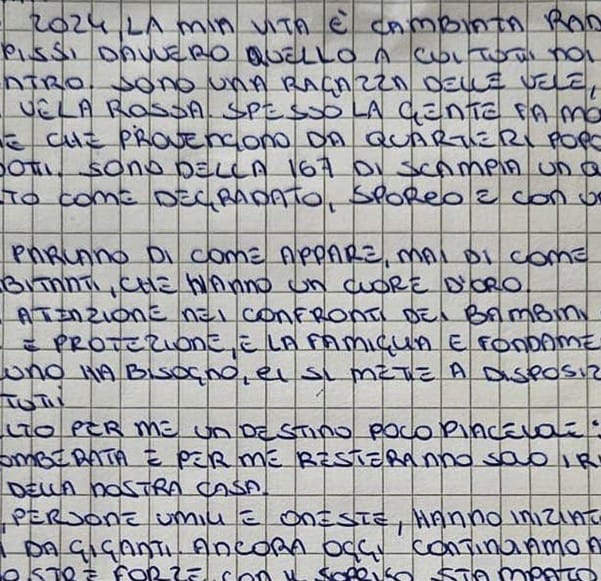 2024, LA MIA VITA È CAMBIATA RAD
PISSI DAVVERO QUELLO A CUI TUTTI NOI
NTRO. SONO UNA RAGAZZA DELLE VELE,
VELA ROSSA. SPESSO LA GENTE FA MO
E CHE PROVENGONO DA QUARTIERI POPO
OTTI. SONO DELLA 167 DI SCAMPIA UN Q
TO COME DEGRADATO, SPORCO E CON U
PARLANO DI COME APPARE, MAI DI COME
BITANTI, CHE HANNO UN CUORE D'ORO.
ATTENZIONE NEI CONFRONTI DEI BAMBINI
E PROTEZIONE, E LA FAMIGLIA E FONDAME
UNO HA BISOGNO, CI SI METTE A DISPOSIZ
TUTTI
LTO PER ME UN DESTINO POCO PIACEVOLE:
OMBERATA E PER ME RESTERANNO SOLO I RI
DELLA NOSTRA CASA.
PERSONE UMILI E ONESTE, HANNO INIZIAT
DA GIGANTI. ANCORA OGGI CONTINUIAMO A
OSTRE FORZE, CON IL SORRISO STAMPATO